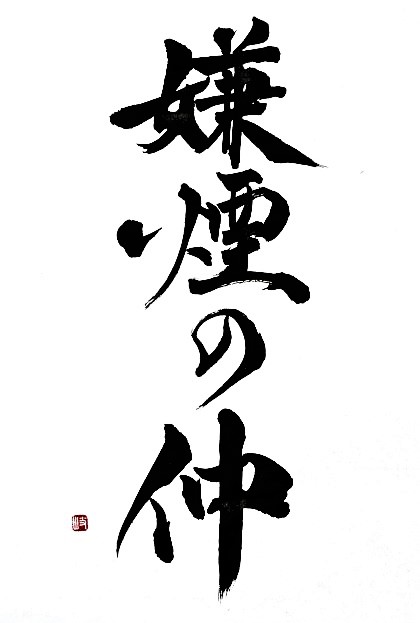 嫌煙の仲